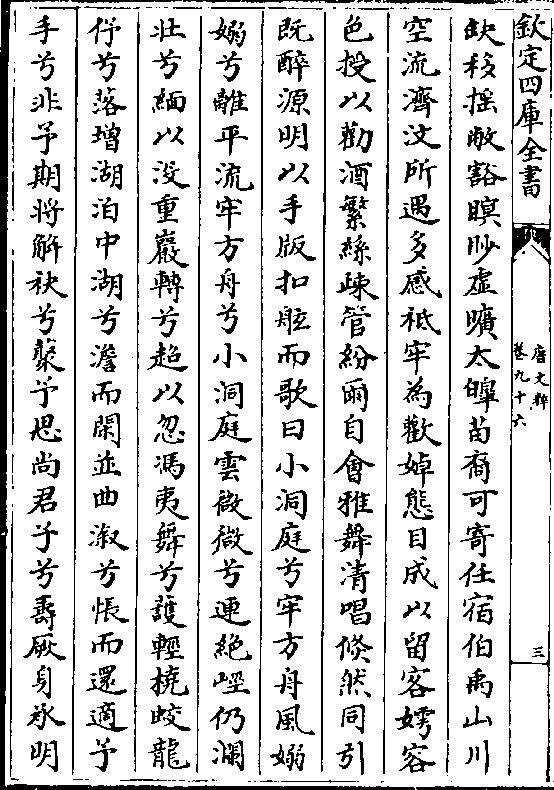 欽定四庫全書
唐文粹
卷九十六
三
缺移摇敞豁暝眇虚曠太皥苗裔可寄任宿伯禹山川
空流濟汶所遇多感祗牢為歡婥態目成以留客嫮容
色授以勸酒繁絲疎管紛爾自會雅舞清唱倐然同引
既醉源明以手版扣舷而歌曰小洞庭兮牢方舟風嫋
嫋兮離平流牢方舟兮小洞庭雲微微兮連絶崿仍瀾
壮兮緬以没重巖轉兮超以忽馮夷舞兮護輕橈蛟龍
伃兮落增湖泊中湖兮澹而閑並曲溆兮悵而還適予
手兮非予期將解袂兮藂予思尚君子兮壽厥身承明